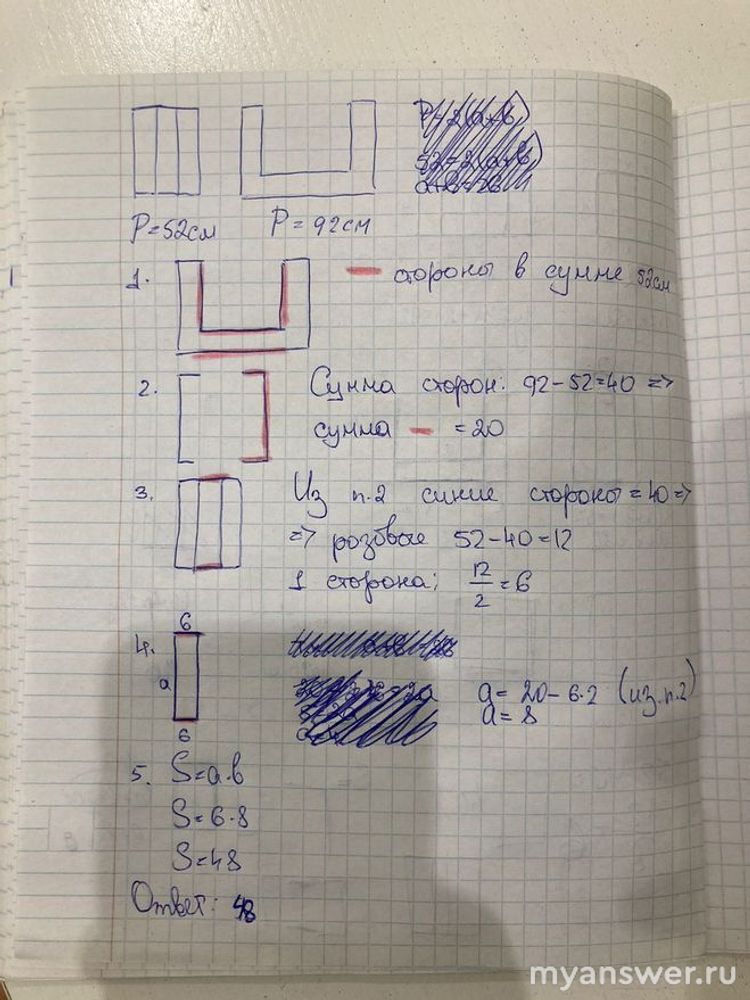 P=52см P=92см
1. стороны в сумме 52см
2. Сумма сторон: 92-52=40 =>
сумма = 20
3. Из п.2 синие стороны = 40 =>
=> розовые 52-40=12
1 сторона; 12/2 = 6
6
4. a
a = 20-6·2 (из.п.2)
a = 8
6
5. S=a·b
S=6·8
S=48
Ответ: 48
myanswer.ru